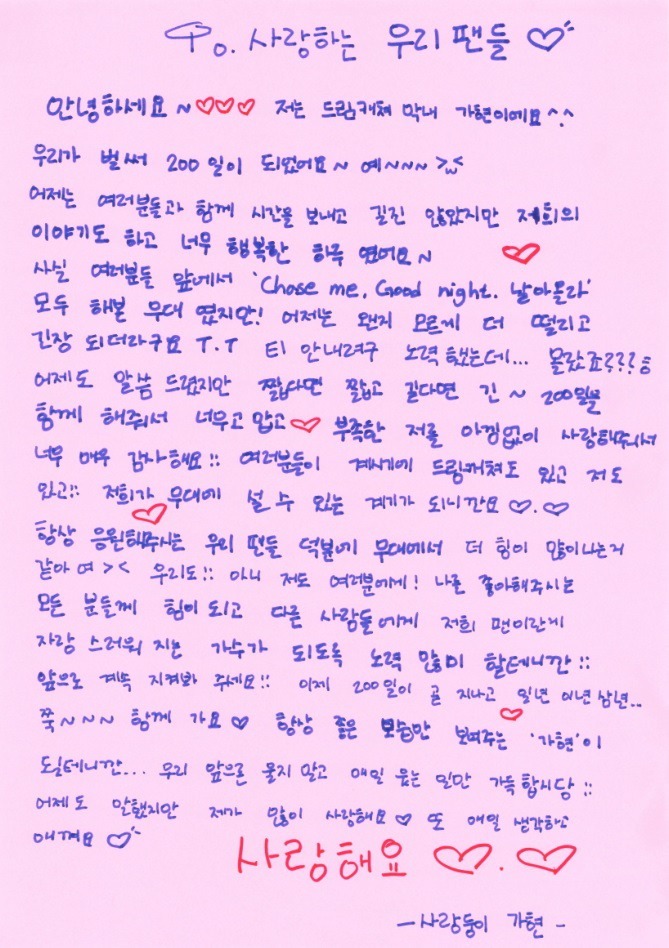 To. 사랑하는 우리 팬들 ♡
안녕하세요~♡♡♡ 저는 드림캐쳐 막내 가현이에요^.^
우리가 벌써 200일이 되었어요~ 예~~~ >ω<
어제는 여러분들과 함께 시간을 보내고 길진 않았지만 저희의
이야기도 하고 너무 행복한 하루 였어요~ ♡
사실 여러분들 앞에서 'Chase me, Good night. 날아올라'
모두 해본 무대 였지만! 어제는 왠지 모르게 더 떨리고
긴장 되더라구요 T.T 티 안내려구 노력했는데... 몰랐죠???ㅎ
어제도 말씀 드렸지만 짧다면 짧고 길다면 긴~ 200일을
함께 해주셔서 너무고맙고♡ 부족한 저를 아낌없이 사랑해주셔서
너무 매우 감사해요!! 여러분들이 계시기에 드림캐쳐도 있고 저도
있고!! 저희가 무대에 설 수 있는 계기가 되니깐요 ♡.♡
항상 응원해주시는 우리 팬들 덕분에 무대에서 더 힘이 많이나는거
같아여 >< 우리도!! 아니 저도 여러분에게! 나를 좋아해주시는
모든 분들께 힘이 되고 다른 사람들에게 저희 팬이란게
자랑 스러워 지는 가수가 되도록 노력 많이 할테니깐!!
앞으로 계속 지켜봐 주세요!! 이제 200일이 곧 지나고 일년 이년 삼년..
쭉~~~ 함께 가요♡ 항상 좋은 모습만 보여주는 '가현'이
될테니깐... 우리 앞으론 울지 말고 매일 웃는 일만 가득합시당!!
어제도 말했지만 제가 많이 사랑해요♡ 또 매일 생각하고
아껴요♡
사랑해요 ♡.♡
- 사랑둥이 가현 -